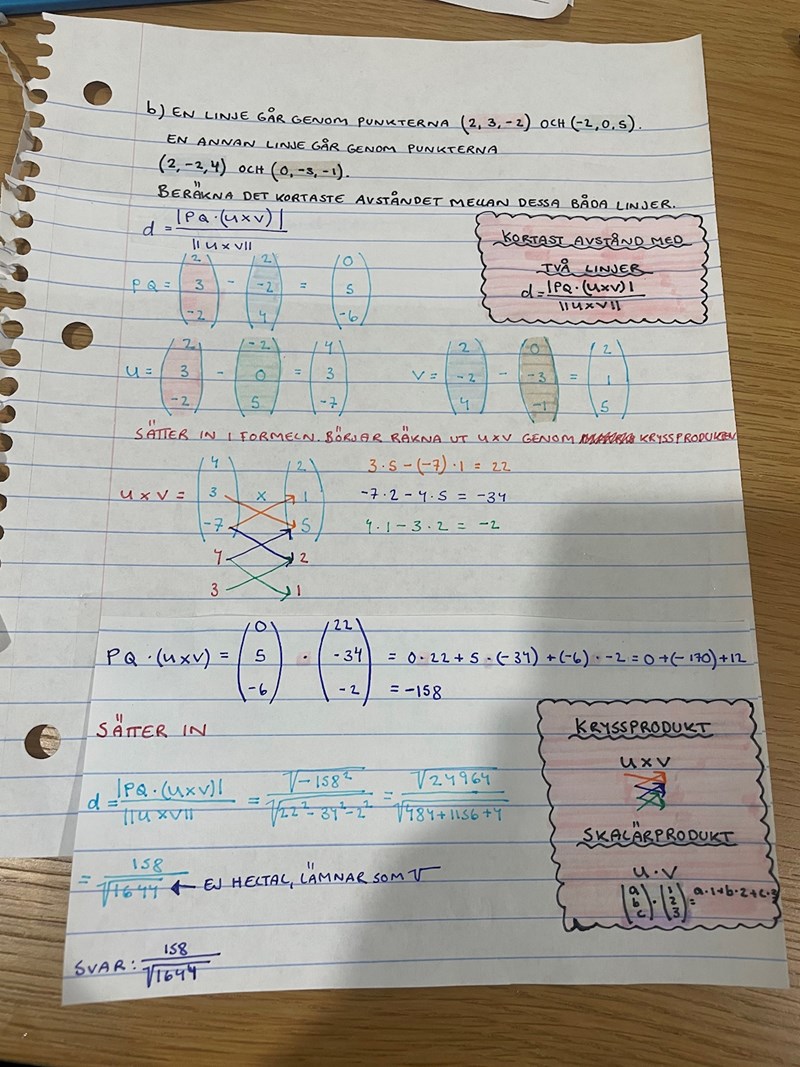 b) EN LINJE GÅR GENOM PUNKTERNA (2, 3, -2) OCH (-2, 0, 5).
EN ANNAN LINJE GÅR GENOM PUNKTERNA
(2, -2, 4) OCH (0, -3, -1).
BERÄKNA DET KORTASTE AVSTÅNDET MELLAN DESSA BÅDA LINJER.
d = |PQ·(U×V)| / ||U×V||
KORTAST AVSTÅND MED
TVÅ LINJER
d = |PQ·(U×V)| / ||U×V||
PQ = (2 3 -2) - (2 -2 4) = (0 5 -6)
U = (2 3 -2) - (-2 0 5) = (4 3 -7)
V = (2 -2 4) - (0 -3 -1) = (2 1 5)
SÄTTER IN I FORMELN. BÖRJAR RÄKNA UT U×V GENOM KRYSSPRODUKTEN
U×V = (4 3 -7) × (2 1 5)
4 2
3 1
3·5-(-7)·1 = 22
-7·2-4·5 = -34
4·1-3·2 = -2
PQ·(U×V) = (0 5 -6) · (22 -34 -2) = 0·22+5·(-34)+(-6)·-2=0+(-170)+12
= -158
SÄTTER IN
d = |PQ·(U×V)| / ||U×V|| = √-158² / √22²-34²-2² = √24964 / √484+1156+4
= 158 / √1644 ← EJ HELTAL, LÄMNAR SOM √
KRYSSPRODUKT
U×V
SKALÄRPRODUKT
U·V
(a b c) · (1 2 3) = a·1+b·2+c·3
SVAR: 158 / √1644